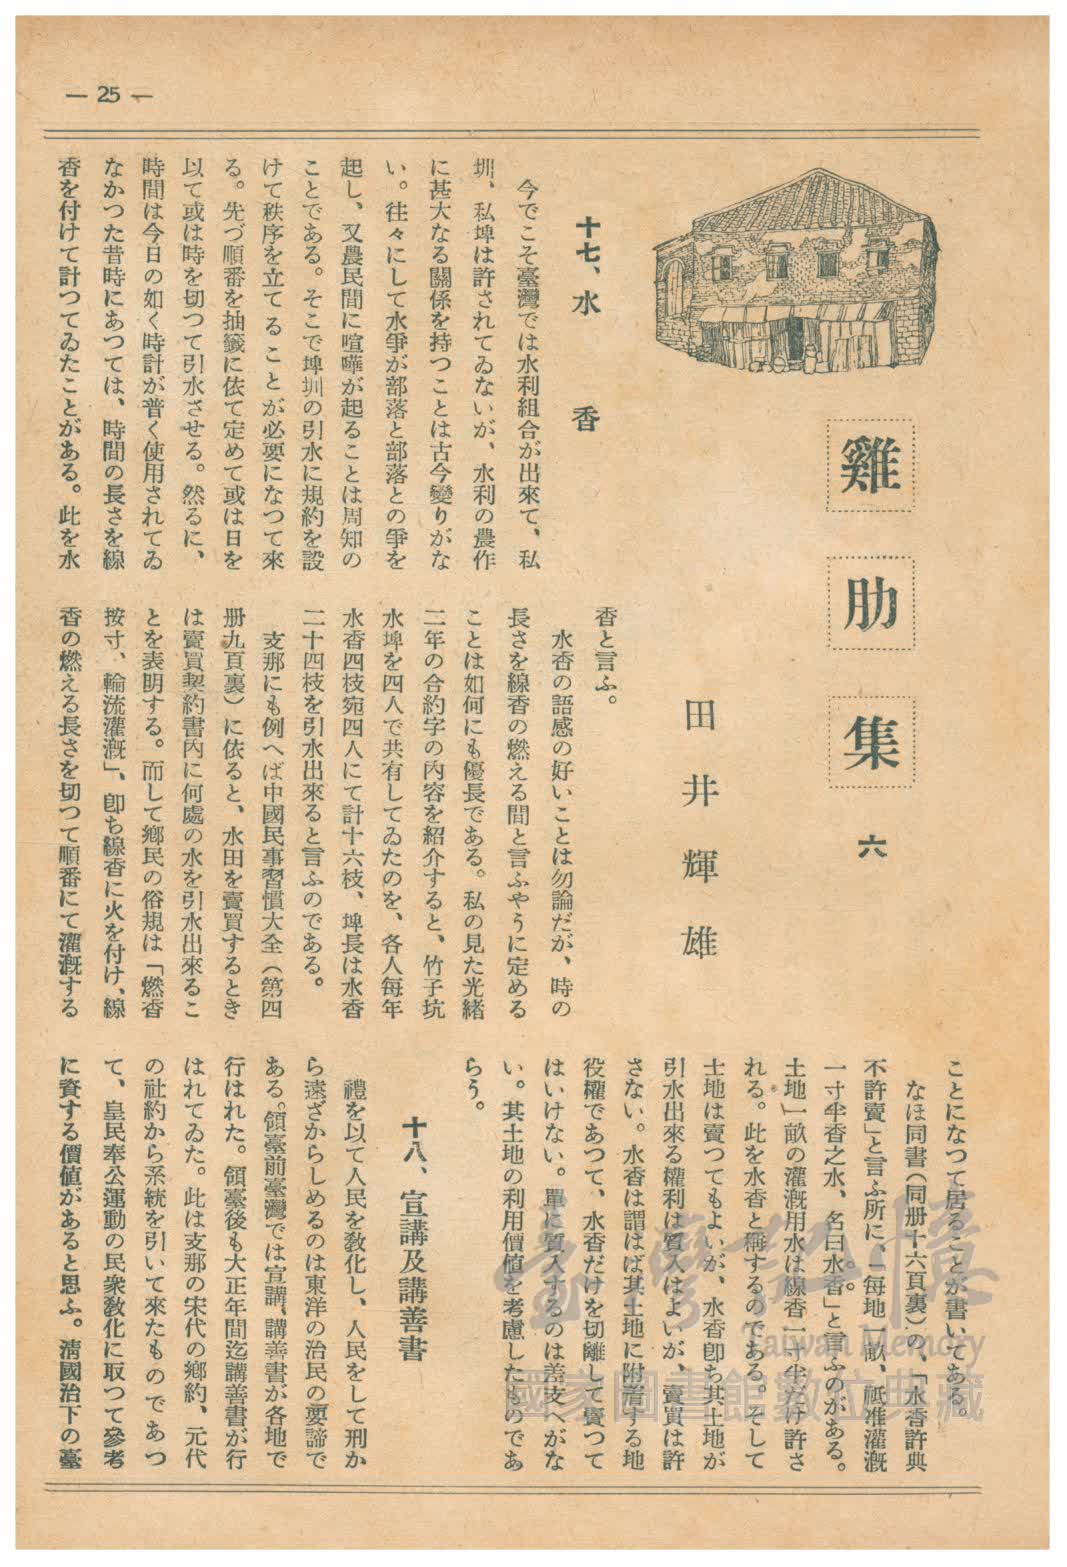 — 25 —
雞肋集 六
田井輝雄
十七、水香
今でこそ臺灣では水利組合が出來て、私
圳、私埤は許されてゐないが、水利の農作
に甚大なる關係を持つことは古今變りがな
い。往々にして水爭が部落と部落との爭を
起し、又農民間に喧嘩が起ることは周知の
ことである。そこで埤圳の引水に規約を設
けて秩序を立てることが必要になつて來
る。先づ順番を抽籤に依て定めて或は日を
以て或は時を切つて引水させる。然るに、
時間は今日の如く時計が普く使用されてゐ
なかつた昔時にあつては、時間の長さを線
香を付けて計つてゐたことがある。此を水
香と言ふ。
水香の語感の好いことは勿論だが、時の
長さを線香の燃える間と言ふやうに定める
ことは如何にも優長である。私の見た光緒
二年の合約字の内容を紹介すると、竹子坑
水埤を四人で共有してゐたのを、各人每年
水香四枝宛四人にて計十六枝、埤長は水香
二十四枝を引水出來ると言ふのである。
支那にも例へば中國民事習慣大全（第四
册九頁裏）に依ると、水田を賣買するとき
は賣買契約書内に何處の水を引水出來るこ
とを表明する。而して鄉民の俗規は「燃香
按寸、輪流灌漑」、卽ち線香に火を付け、線
香の燃える長さを切つて順番にて灌漑する
ことになつて居ることが書いてある。
なほ同書（同册十六頁裏）の、「水香許典
不許賣」と言ふ所に、「每地一畝、祗准灌漑
一寸半香之水、名曰水香」と言ふのがある。
土地一畝の灌漑用水は線香一寸半だけ許さ
れる。此を水香と稱するのである。そして
土地は賣つてもよいが、水香卽ち其土地が
引水出來る權利は質入はよいが、賣買は許
さない。水香は謂はば其土地に附着する地
役權であつて、水香だけを切離して賣つて
はいけない。單に質入するのは差支へがな
い。其土地の利用價値を考慮したものであ
らう。
十八、宣講及講善書
禮を以て人民を敎化し、人民をして刑か
ら遠ざからしめるのは東洋の治民の要諦で
ある。領臺前臺灣では宣講、講善書が各地で
行はれた。領臺後も大正年間迄講善書が行
はれてゐた。此は支那の宋代の鄉約、元代
の社約から系統を引いて來たものであつ
て、皇民奉公運動の民衆敎化に取つて參考
に資する價値があると思ふ。淸國治下の臺
臺灣記憶
Taiwan Memory
國家圖書館數位典藏